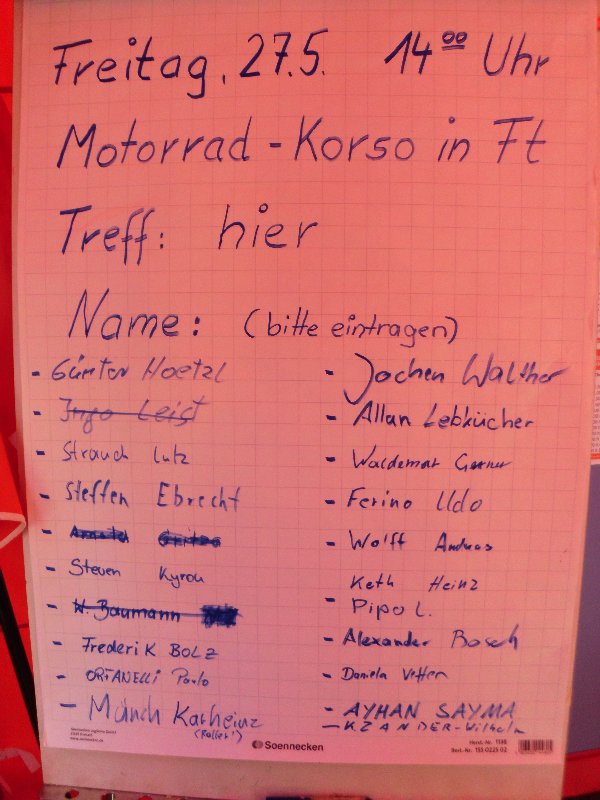 Freitag, 27.5. 14⁰⁰ Uhr
Motorrad-Korso in Ft
Treff: hier
Name: (bitte eintragen)
- Günter Hoetzl
- Ingo Leist
- Strauch Lutz
- Steffen Ebrecht
-
- Steven Kyrou
- W. Baumann
- Frederik BOLZ
- ORTANELLI Paolo
- Münch Karlheinz
(Roller!)
- Jochen Walther
- Allan Lebkücher
- Waldemar
- Ferino Udo
- Wolff Andreas
Keth Heinz
- Pipo L.
- Alexander Bosch
- Daniela Vetter
- AYHAN SAYMA
- KZANDER-Wilhelm
Soennecken
Herst.-Nr. 1198
Best.-Nr. 155 0225 02